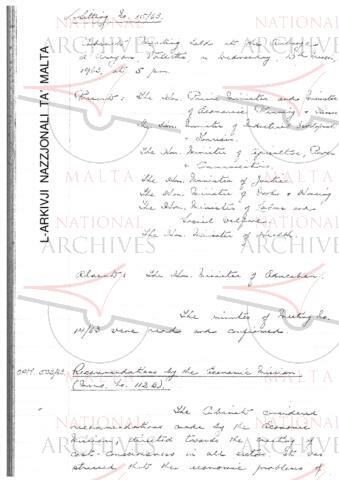 Sitting No. 15/63.
Cabinet Meeting held at the Auberge
d'Aragon, Valletta, on Wednesday, 13th
1963, at 5 pm.
Present: The Hon. Prime Minister and Minister
of Economic Planning & Finance
The Hon. Minister of Industrial Development
& Tourism.
The Hon. Minister of Agriculture, Power
& Communications.
The Hon. Minister of Justice
The Hon. Minister of Works & Housing
The Hon. Minister of Labour and
Social Welfare.
The Hon. Minister of Health.
Absent: The Hon. Minister of Education.
The minutes of Meeting No.
14/63 were read and confirmed
OPM. 
Recommendations by the Economic Mission.
(Memo. No. 1126).
The Cabinet considered
recommendations made by the Economic
Mission, directed towards the creating of
cost-consciousness in all sectors. It was
stressed that the economic problems of
L-ARKIVJI NAZZJONALI TA' MALTA
NATIONAL
MALTA
ARCHIVES